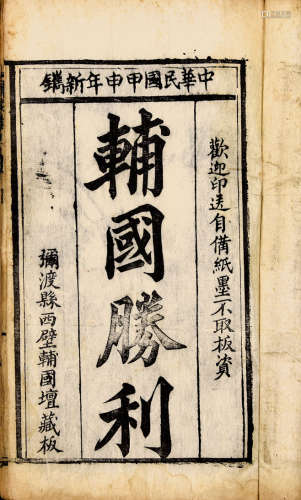 中華民國甲申年新鐫
歡迎印送自備紙墨不取板資
輔國勝利
彌渡縣西壁輔國壇藏板